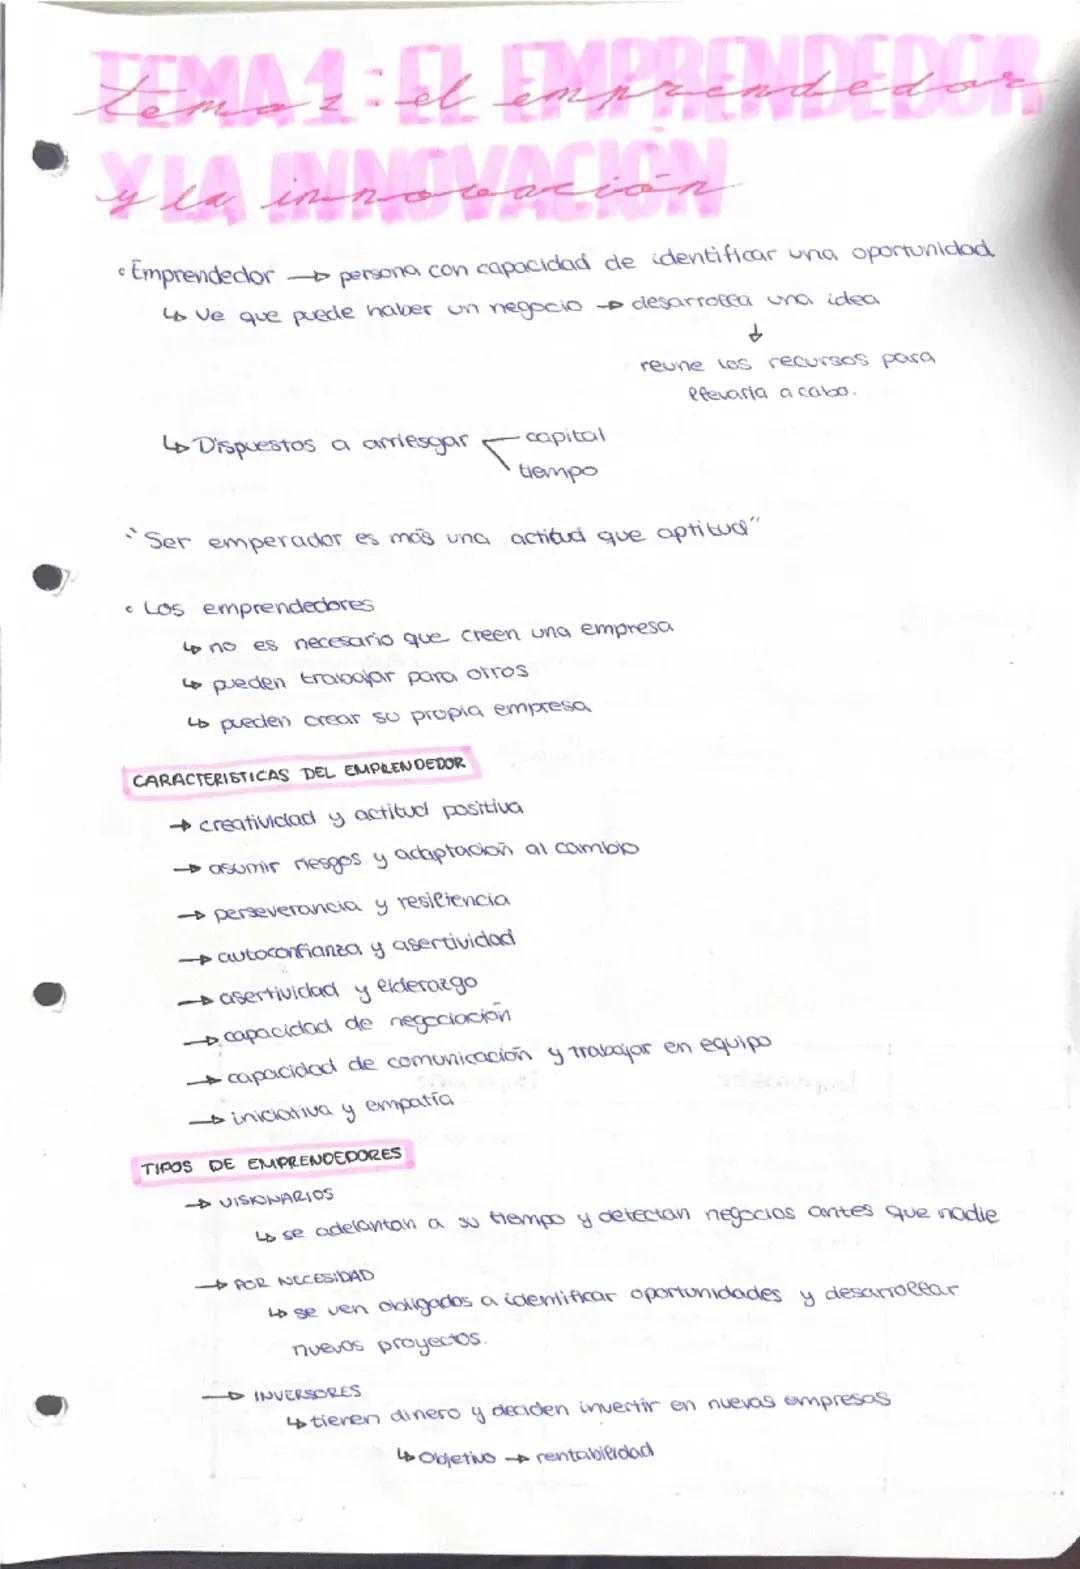 TEMA 1: EL EMPRENDEDOR
tema 1: el emprendedor
Y LA INNOVACIÓN
y la innovación
• Emprendedor → persona con capacidad de identificar una oportunidad
↳ Ve que puede haber un negocio → desarrolla una idea
↓
reune los recursos para
llevarla a cabo.
↳ Dispuestos a arriesgar
capital
tiempo
"Ser emperador es más una actitud que aptitud"
• Los emprendedores
↳ no es necesario que creen una empresa
↳ pueden trabajar para otros
↳ pueden crear su propia empresa
CARACTERISTICAS DEL EMPRENDEDOR
→ creatividad y actitud positiva
→ asumir riesgos y adaptación al cambio
→ perseverancia y resiliencia
→ autoconfianza y asertividad
→ asertividad y liderazgo
→ capacidad de negociación
→ capacidad de comunicación y trabajar en equipo
→ iniciativa y empatía
TIPOS DE EMPRENDEDORES
→ VISIONARIOS
↳ se adelantan a su tiempo y detectan negocios antes que nadie
→ POR NECESIDAD
↳ se ven obligados a identificar oportunidades y desarrollar
nuevos proyectos.
→ INVERSORES
↳ tienen dinero y deciden invertir en nuevas empresas
↳ Objetivo → rentabilidad